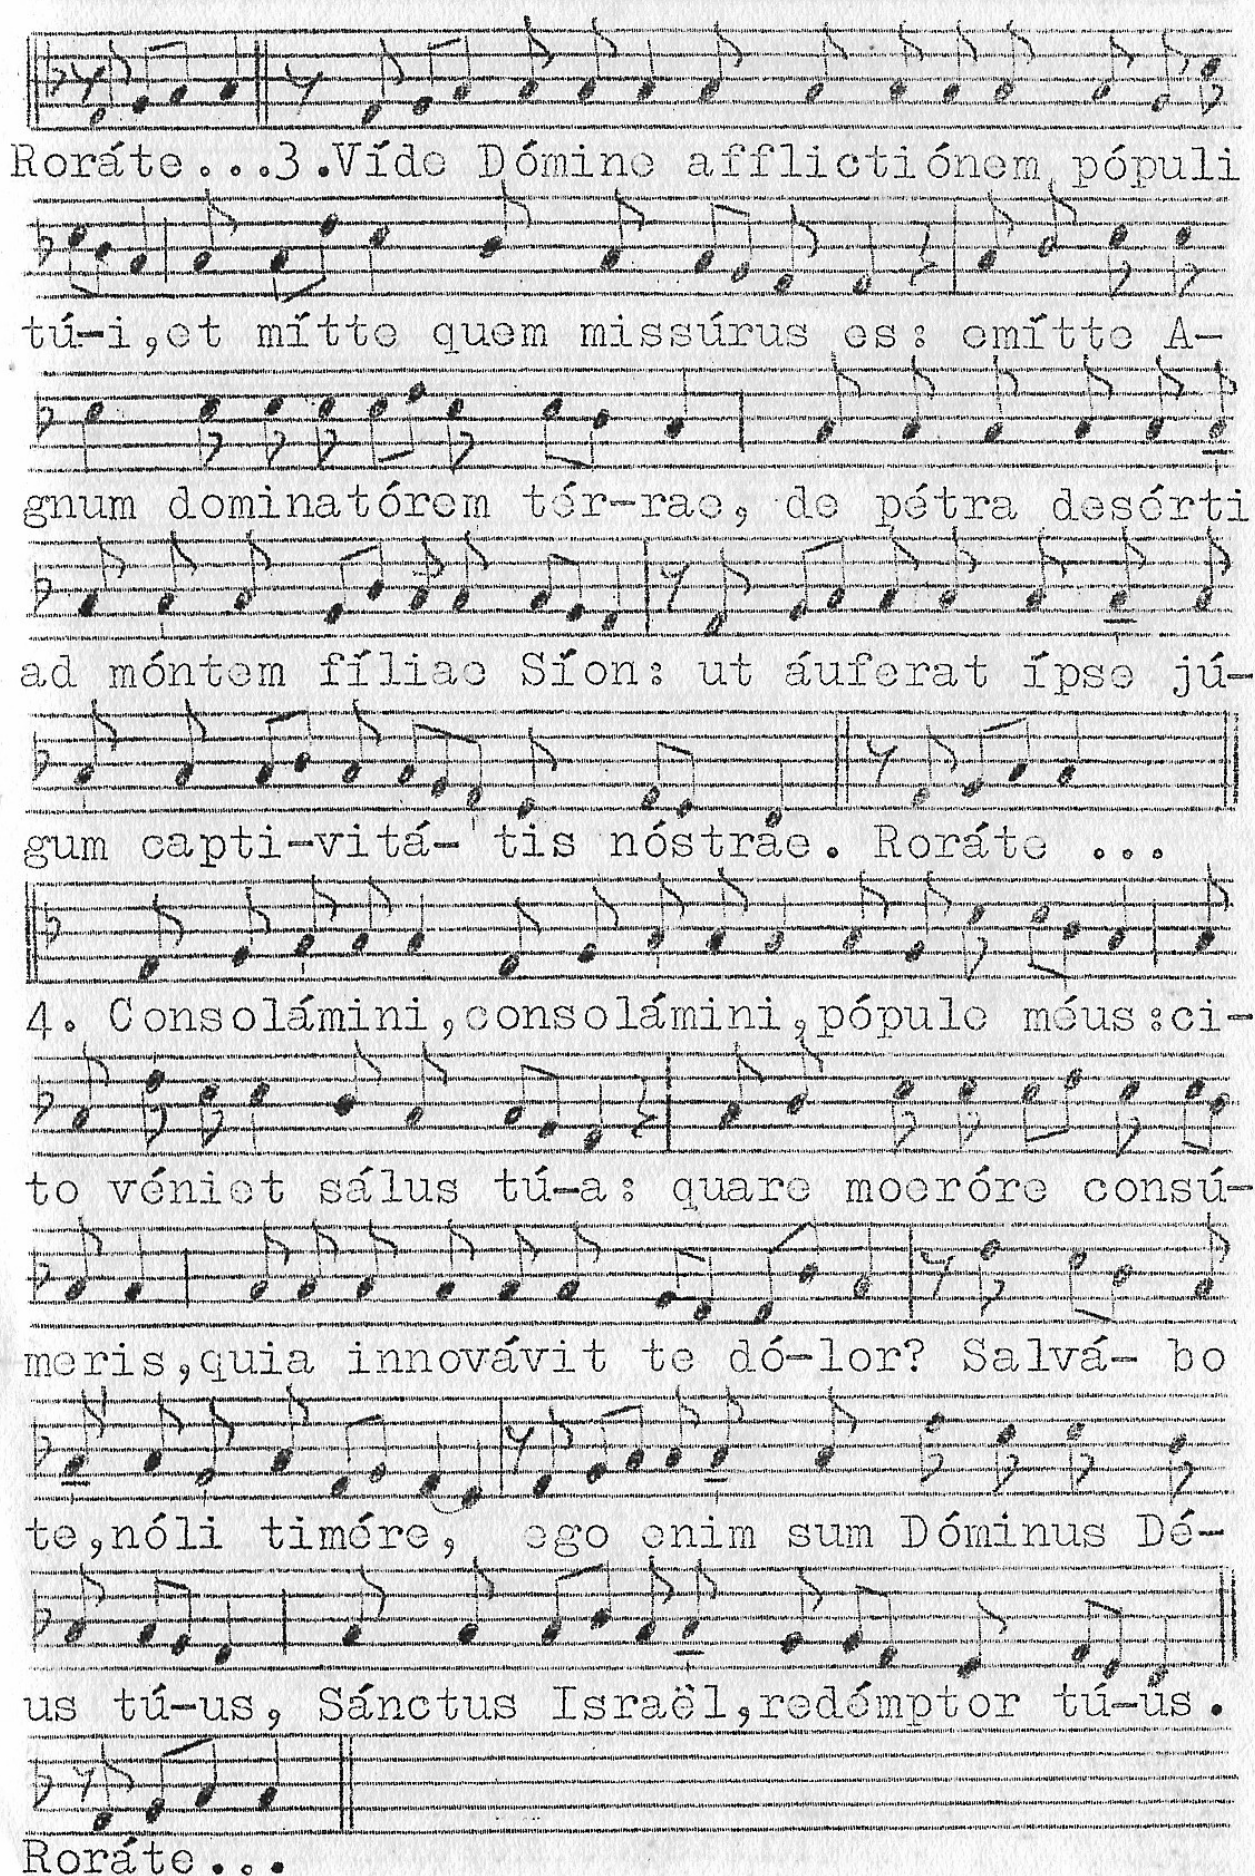 Roráte...3.Víde Dómine afflictiónem pópuli
tú-i,et mítte quem missúrus es: emítte A-
gnum dominatórem tér-rae, de pétra desérti
ad móntem fíliae Síon: ut áuferat ípse jú-
gum capti-vitá- tis nóstrae. Roráte ...
4. Consolámini,consolámini,pópule méus:ci-
to véniet sálus tú-a: quare moeróre consú-
meris,quia innovávit te dó-lor? Salvá- bo
te,nóli timére, ego enim sum Dóminus Dé-
us tú-us, Sánctus Israël,redémptor tú-us.
Roráte...